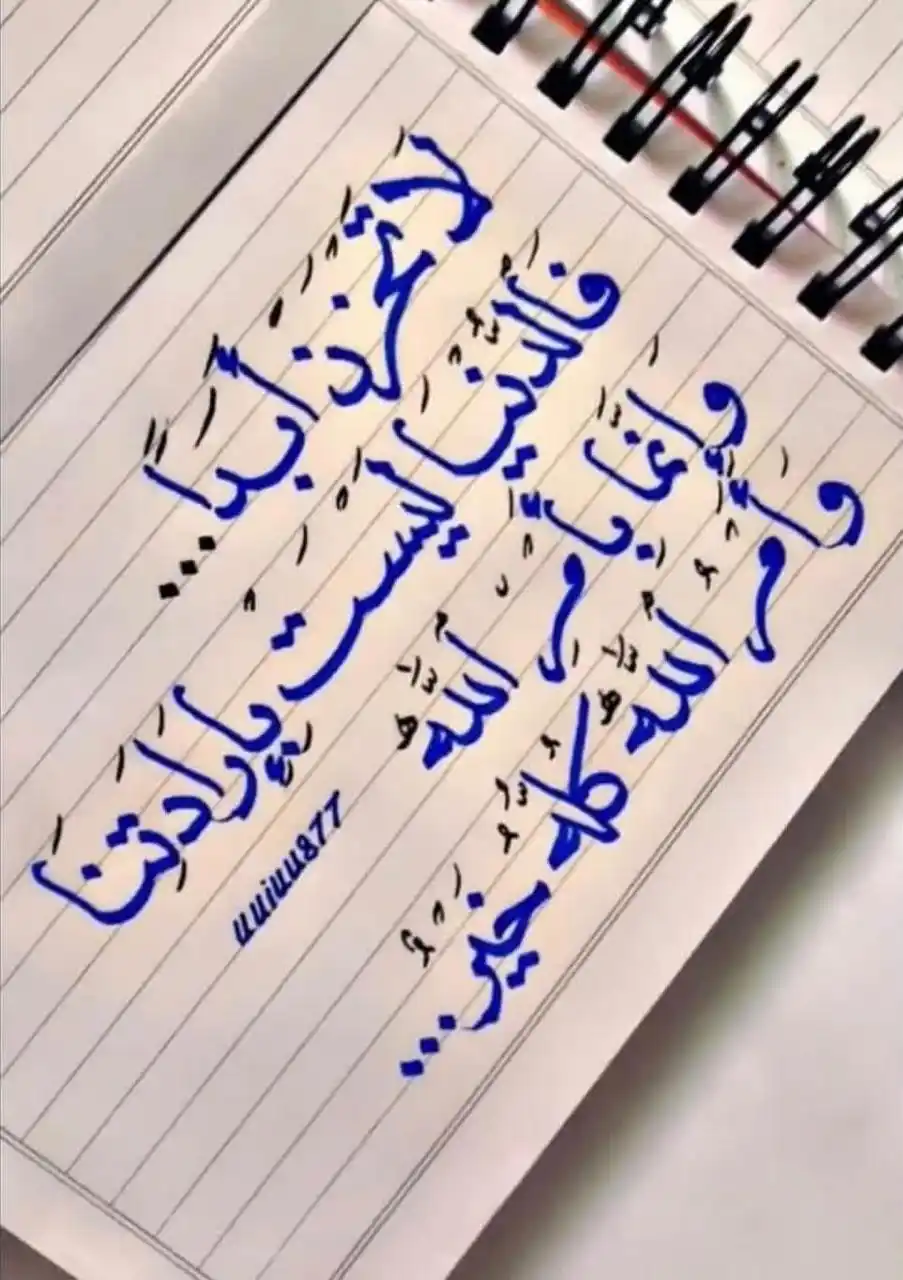 لَا تَحْزَنْ أَبَدًا...
فَالدُّنْيَا لَيْسَتْ بِإِرَادَتِنَا
وَإِنَّمَا بِأَمْرِ اللَّهِ
وَأَمْرُ اللَّهِ كُلُّهُ خَيْرٌ...
uuiuu877